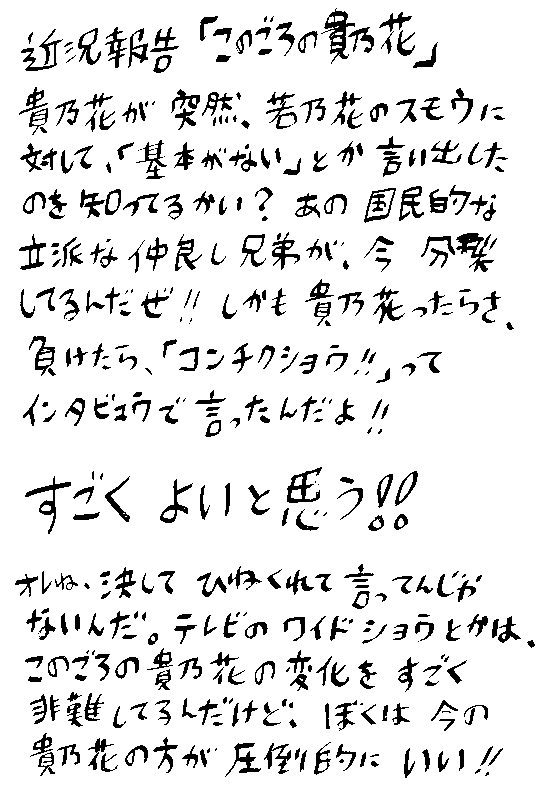 近況報告「このごろの貴乃花」
貴乃花が 突然、若乃花のスモウに
対して、「基本がない」とか 言い出した
のを知ってるかい？ あの 国民的な
立派な仲良し兄弟が、今 分裂
してるんだぜ!! しかも 貴乃花ったらさ、
負けたら、「コンチクショウ!!」って
インタビュウで言ったんだよ!!
すごく よいと思う!!
オレね、決して ひねくれて言ってんじゃ
ないんだ。テレビの ワイドショウとかは、
このごろの貴乃花の変化を すごく
非難してるんだけど、ぼくは 今の
貴乃花の方が 圧倒的に いい!!